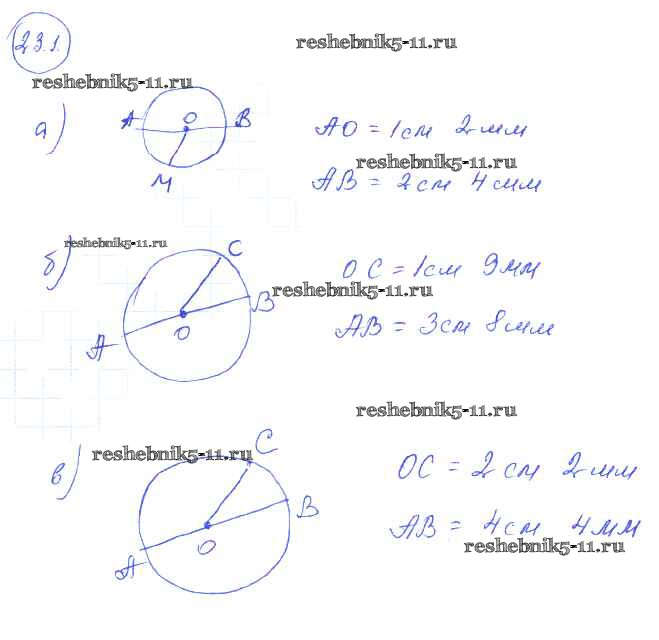 23.1.
reshebnik5-11.ru
reshebnik5-11.ru
а)
А О В
М
АО = 1см 2мм
reshebnik5-11.ru
АВ = 2см 4мм
б)
reshebnik5-11.ru
С
В
А О
ОС = 1см 9мм
reshebnik5-11.ru
АВ = 3см 8мм
reshebnik5-11.ru
в)
reshebnik5-11.ru
С
В
А О
ОС = 2см 2мм
АВ = 4см 4мм
reshebnik5-11.ru